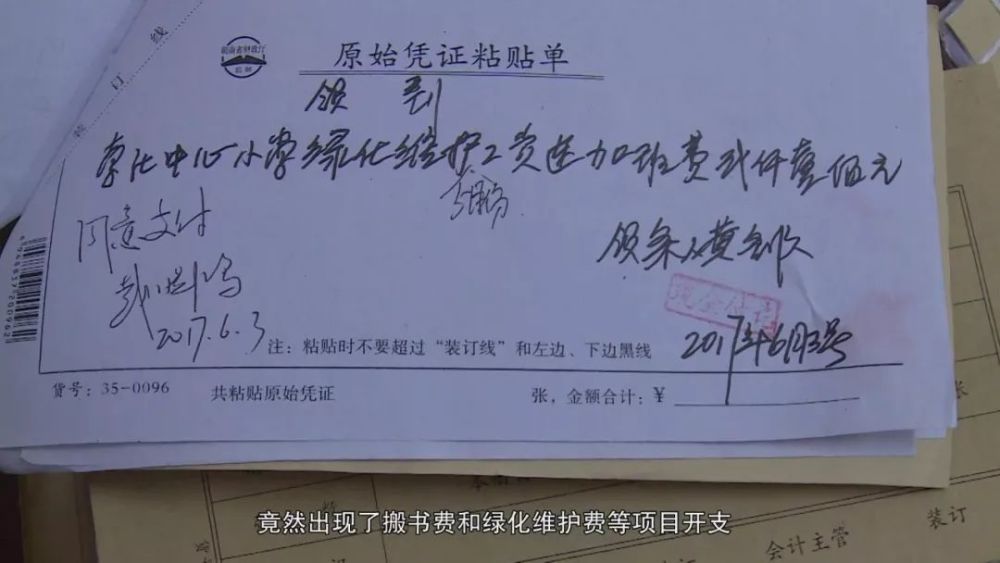 装订线
原始凭证粘贴单
领到
中心小学绿化维护工资送加班费贰仟壹佰元
同意支付
2017.6.3
领条人黄
现金付讫
2017年6月3号
注：粘贴时不要超过“装订线”和左边、下边黑线
货号：35-0096 共粘贴原始凭证 张，金额合计：￥
竟然出现了搬书费和绿化维护费等项目开支
会计主管
装订